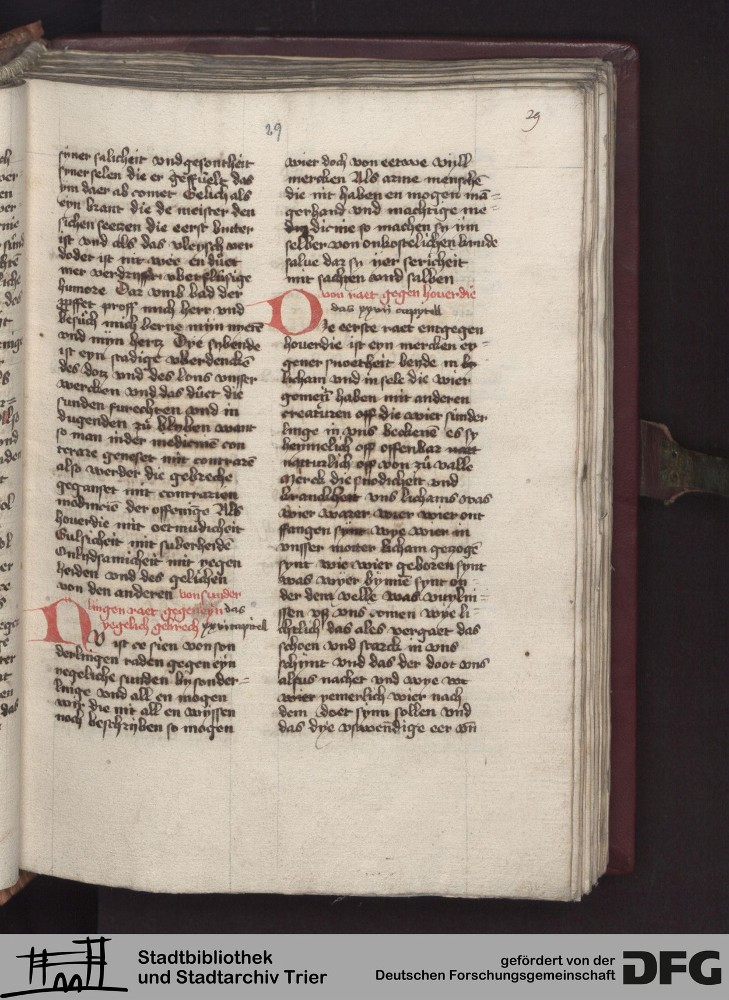 29
29
syner salicheit vnd gesontheit
syner selen die er geffuelt das
ym daer ab comet Gelich als
eyn brant die de meister den
sichen seczen die eerst bitter
ist vnd als das vleysch ver
dodet ist nit wee en duet
mer verdryfft vberflusige
humore Dar vmb bad der
proffet proff mich herr vnd
besuch mich berne mijn nyeren
vnd mijn hertz Dye sybende
ist eyn stadige vberdencken
des dotz vnd des lons vnser
wercken vnd das duet die
sunden furechten vnd in
dugenden zu blyben want
so man in der medicinen con
trarie geneset mit contrarie
also werdet die gebreche
geganset mit contrarien
medicinen der offeninge Als
hoverdie mit oetmudicheit
Gulsicheit mit suberheiden
Onlydsamicheit mit regen
heiden vnd des gelichen
von den anderen von sunder
lingen raet gegen eyn das
yegelich gebrech xxvi capitell
NV ist ce sien von son
derlingen raden gegen eyn
yegeliche sunden bysonder-
linge vnd all en mogen
wijr die nit all en wyssen
noch beschryben so mogen
wier doch von eetwe vyll
mercken Als arme menschen
die nit haben en mogen man=
gerhand vnd machtige me=
dicine so machen sy im
selber von onkostelichen krude
salve dar sy ir sericheit
mit sachten vnd salben
von raet gegen hoverdie
das xxvii capytell
DJe eerste raet entgegen
hoverdie ist eyn mercken ey=
gener snoetheit beyde in
licham vnd in sele die wier
gemeyn haben mit anderen
creaturen off die wier sunder
linge in vns bekenne es sy
heymelich off offenbar
natturlich off von zu valle
Merck die snodicheit vnd
kranckheit vns lichams was
wier waren wier ont
ffangen wye wier in
vnsser moter licham gezoge
synt wie wier geboren synt
was wyer bynne synt on=
der dem velle was vuyln=
ssen vss vns comen wye li=
chtlich das ales vergaet das
schoen vnd starck in vns
schynt vnd das der doot vns
alsus nachet vnd wye
yemerlich wier nach
dem doet synn sollen vnd
das dye vswendige eer vn
Stadtbibliothek
und Stadtarchiv Trier
gefördert von der
Deutschen Forschungsgemeinschaft
DFG